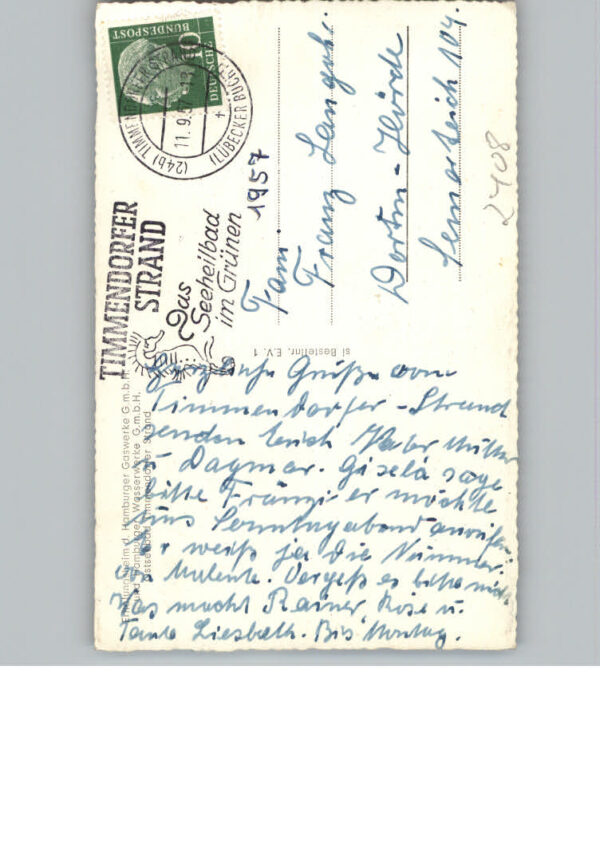 DEUTSCHE
BUNDESPOST
10
(24b) TIMMENDORFER STRAND
11.9.57
(LÜBECKER BUCHT)
TIMMENDORFER
STRAND
Das
Seeheilbad
im Grünen
1957
Fam.
Franz
Dortm-Hörde
104.
2408
si Bestellnr. E.V. 1
Erholungsheim d. Hamburger Gaswerke G.m.b.H.
und Hamburger Wasserwerke G.m.b.H.
Ostseebad Timmendorfer Strand
Herzliche Grüße vom
Timmendorfer-Strand
senden Euch Vater Mutter
u Dagmar. Gisela sage
bitte Fränzi er möchte
uns Sonntagabend anrufen
er weiß ja die Nummer.
Vergeß es bitte nicht
Was macht Rainer, Rose u.
Tante Liesbeth. Bis Montag.